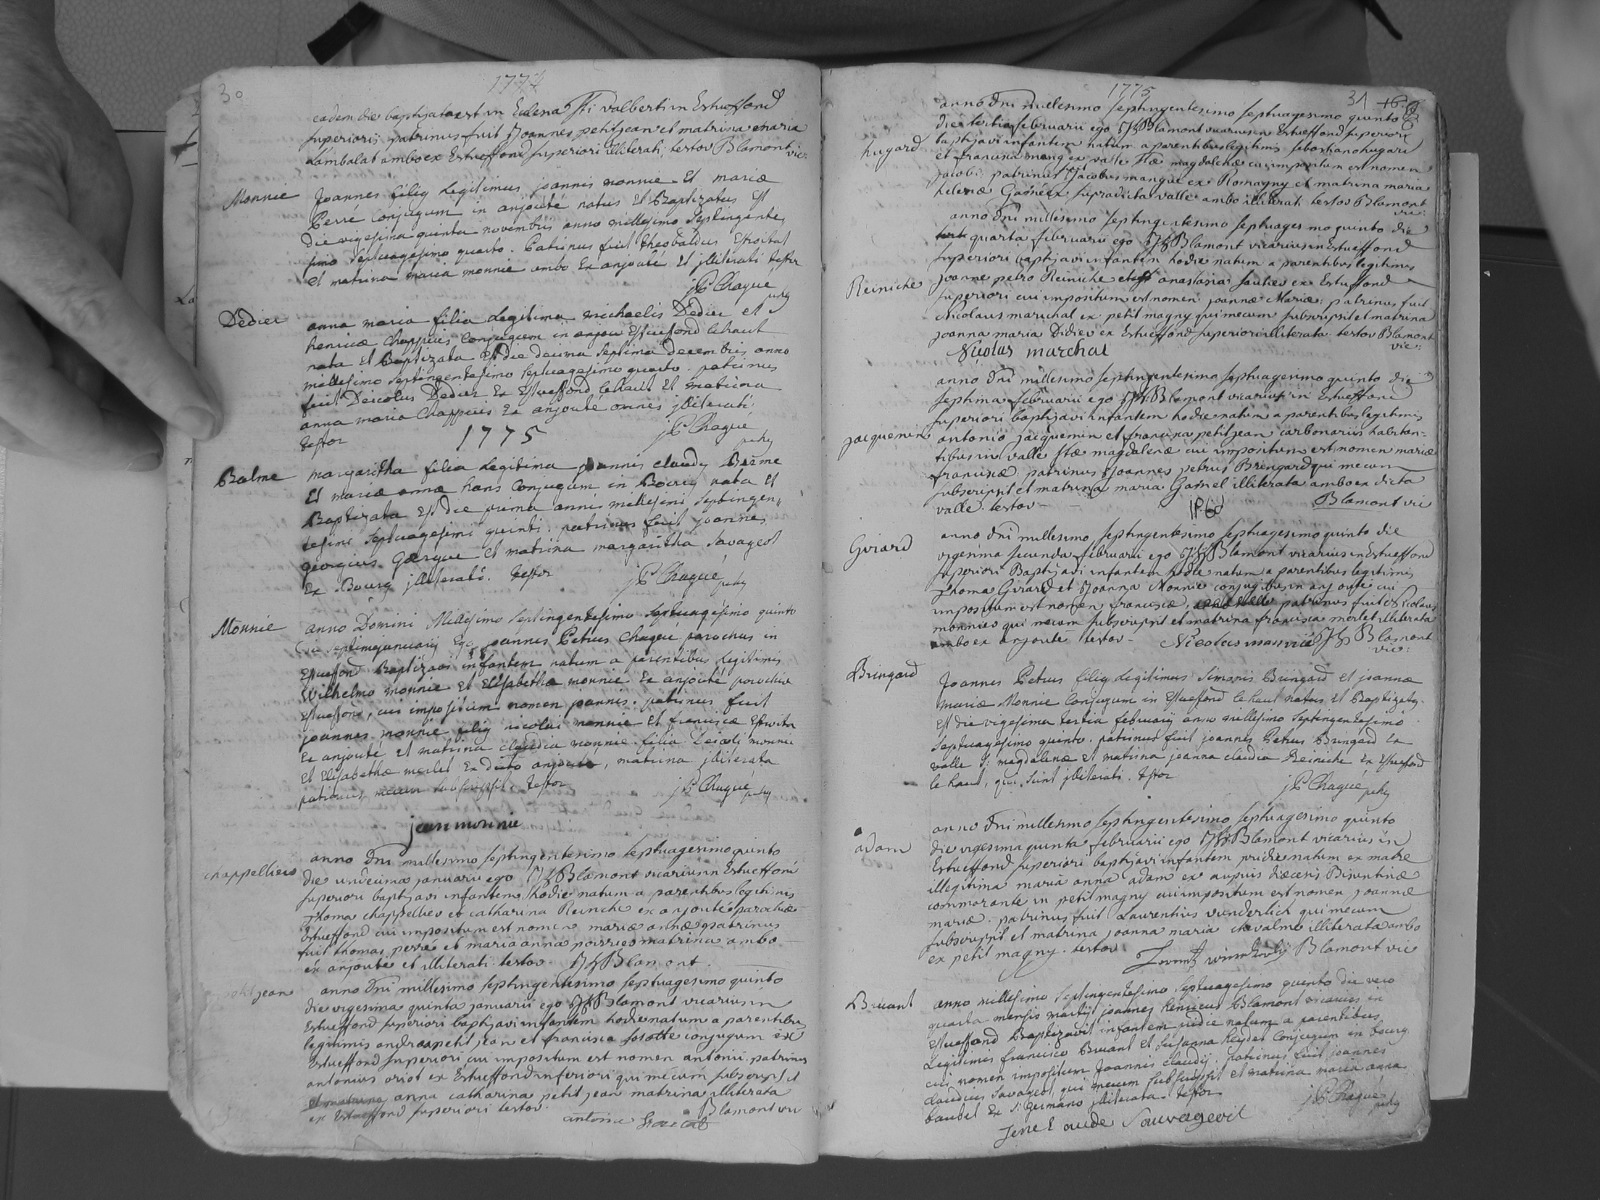 30
1774
eadem die baptizata est in Ecclena Sti valberti in Estueffond
superiori, patrinus fuit Joannes petitjean et matrina maria
Lambalat ambo ex Estueffond superiori illiterati, testor Blamont vic
Monnie
Joannes filius legitimus joannis monnie et mariæ
Perre conjugum in anjouté natus et Baptizatus est
die vigesima quinta novembris anno millesimo septingente
simo septuagesimo quarto. Patrinus fuit theobaldus
et matrina maria monnie ambo ex anjouté et illiterati testor
jP Chagué
Dedier
anna maria filia legitima michaelis Dedier et
chappuis conjugum in Estueffond le haut
nata et Baptizata est die decima septima decembris anno
millesimo septingentesimo septuagesimo quarto. patrinus
fuit Deicolus Dedier ex Estueffond le haut et matrina
anna maria Chappuis ex anjouté omnes illiterati
testor
jP Chagué
1775
margaritha filia legitima joannis claudii
et mariæ annæ hans conjugum in Bourg nata et
Baptizata est die prima anni millesimi septingen
tesimi septuagesimi quinti. patrinus fuit joannes
georgius George et matrina margaritha Savageol
ex Bourg illiterati. testor
jP Chagué
Monnie
anno Domini Millesimo septingentesimo septuagesimo quinto
die septima januarii Ego joannes Petrus Chagué parochus in
Estueffond Baptizavi infantem natum a parentibus legitimis
Wilhelmo monnie et Elisabetha monnie ex anjouté parochiæ
Estueffond, cui impositum nomen joannis. patrinus fuit
joannes monnie filius nicolai monnie et franciscæ
ex anjouté et matrina claudia monnie filia Deicoli monnie
et Elisabethæ merlet ex dicto anjouté, matrina illiterata
patrinus mecum subscripsit. testor
jP Chagué
jean monnie
chappellier
anno Dni millesimo septingentesimo septuagesimo quinto
die undecima januarii ego JH Blamont vicarius in Estueffond
superiori baptizavi infantem hodie natum a parentibus legitimis
Thoma chappellier et catharina Reinche ex anjouté parochiæ
Estueffond cui impositum est nomen mariæ annæ patrinus
fuit thomas perre et maria anna poirree matrina ambo
ex anjouté et illiterati. testor JH Blamont.
petit jean
anno Dni millesimo septingentesimo septuagesimo quinto
die vigesima quinta januarii ego JH Blamont vicarius in
Estueffond superiori baptizavi infantem hodie natum a parentibus
legitimis andrea petit jean et francisca conjugum ex
Estueffond superiori cui impositum est nomen antonii patrinus
antonius oriot ex Estueffond inferiori qui mecum subscripsit
et matrina anna catharina petit jean matrina illiterata
ex Estueffond superiori testor.
Blamont vic
antoine
1775
31
hugard
anno Dni millesimo septingentesimo septuagesimo quinto
die tertia februarii ego JH Blamont vicarius in Estueffond superiori
baptizavi infantem natum a parentibus legitimis sebastiano hugard
et francisca mang ex valle Stæ magdalenæ cui impositum est nomen
jacobi. patrinus Jacobus mangue ex Romagny et matrina maria
helena Gasner supradicta valle ambo illiterati testor Blamont
vic:
Reiniche
anno Dni millesimo septingentesimo septuagesimo quinto die
quarta februarii ego JH Blamont vicarius in Estueffond
superiori baptizavi infantem hodie natum a parentibus legitimis
joanne petro Reiniche et anastasia sautier ex Estueffond
superiori cui impositum est nomen joannæ Mariæ patrinus fuit
Nicolaus marichal ex petit magny qui mecum subscripsit et matrina
joanna maria Didier ex Estueffond superiori illiterata testor Blamont
vic:
Nicolas marchal
jacquemin
anno Dni millesimo septingentesimo septuagesimo quinto die
septima februarii ego JH Blamont vicarius in Estueffond
superiori baptizavi infantem hodie natum a parentibus legitimis
antonio jacquemin et francisca petitjean carbonariis habitan-
tibus in valle Stæ magdalenæ cui impositum est nomen mariæ
franciscæ patrinus Joannes petrus Brengard qui mecum
subscripsit et matrina maria Gasnel illiterata ambo ex dicta
valle. testor
Blamont vic
Girard
anno Dni millesimo septingentesimo septuagesimo quinto die
vigesima secunda februarii ego JH Blamont vicarius in Estueffond
superiori Baptizavi infantem hodie natum a parentibus legitimis
Thoma Girard et Joanna Monnie conjugibus in anjoutei cui
impositum est nomen franciscæ, patrinus fuit Nicolaus
monnier qui mecum subscripsit et matrina francisca morlet illiterata
ambo ex anjouté testor
Nicolas monnie JH Blamont
vic:
Bringard
Joannes Petrus filius legitimus Simonis Bringard et joannæ
mariæ Monnie conjugum in Estueffond le haut natus et Baptizatus
est die vigesima tertia februarii anno millesimo septingentesimo
septuagesimo quinto. patrinus fuit joannes Petrus Bringard ex
valle S: magdalenæ et matrina joanna claudia Reiniche ex Estueffond
le haut, qui sunt illiterati. testor
jP Chagué
adam
anno Dni millesimo septingentesimo septuagesimo quinto
die vigesima quinta februarii ego JH Blamont vicarius in
Estueffond superiori baptizavi infantem pridie natum ex matre
illegitima maria anna adam ex aupuis diœcesis Bisuntinæ
commorante in petit magny cui impositum est nomen joannæ
mariæ. patrinus fuit Laurentius wunderlich qui mecum
subscripsit et matrina joanna maria chevalme illiterata ambo
ex petit magny. testor
Blamont vic
Bruant
anno millesimo septingentesimo septuagesimo quinto die vero
quarta mensis martii joannes henricus Blamont vicarius in
Estueffond Baptizavit infantem pridie natum a parentibus
Legitimis francisco Bruant et Susanna Keyser conjugum in bourg
cui nomen impositum Joannis claudii. patrinus fuit joannes
claudius Savageol qui mecum subscripsit et matrina maria anna
baubel ex S: Germano illiterata. testor
jP Chagué
Jene Loude Sauvageoil